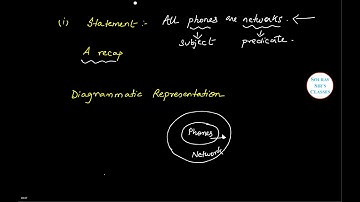 (i) Statement :- All phones are networks.
A recap subject predicate.
Diagrammatic Representation
Phones
Network
CLASSES